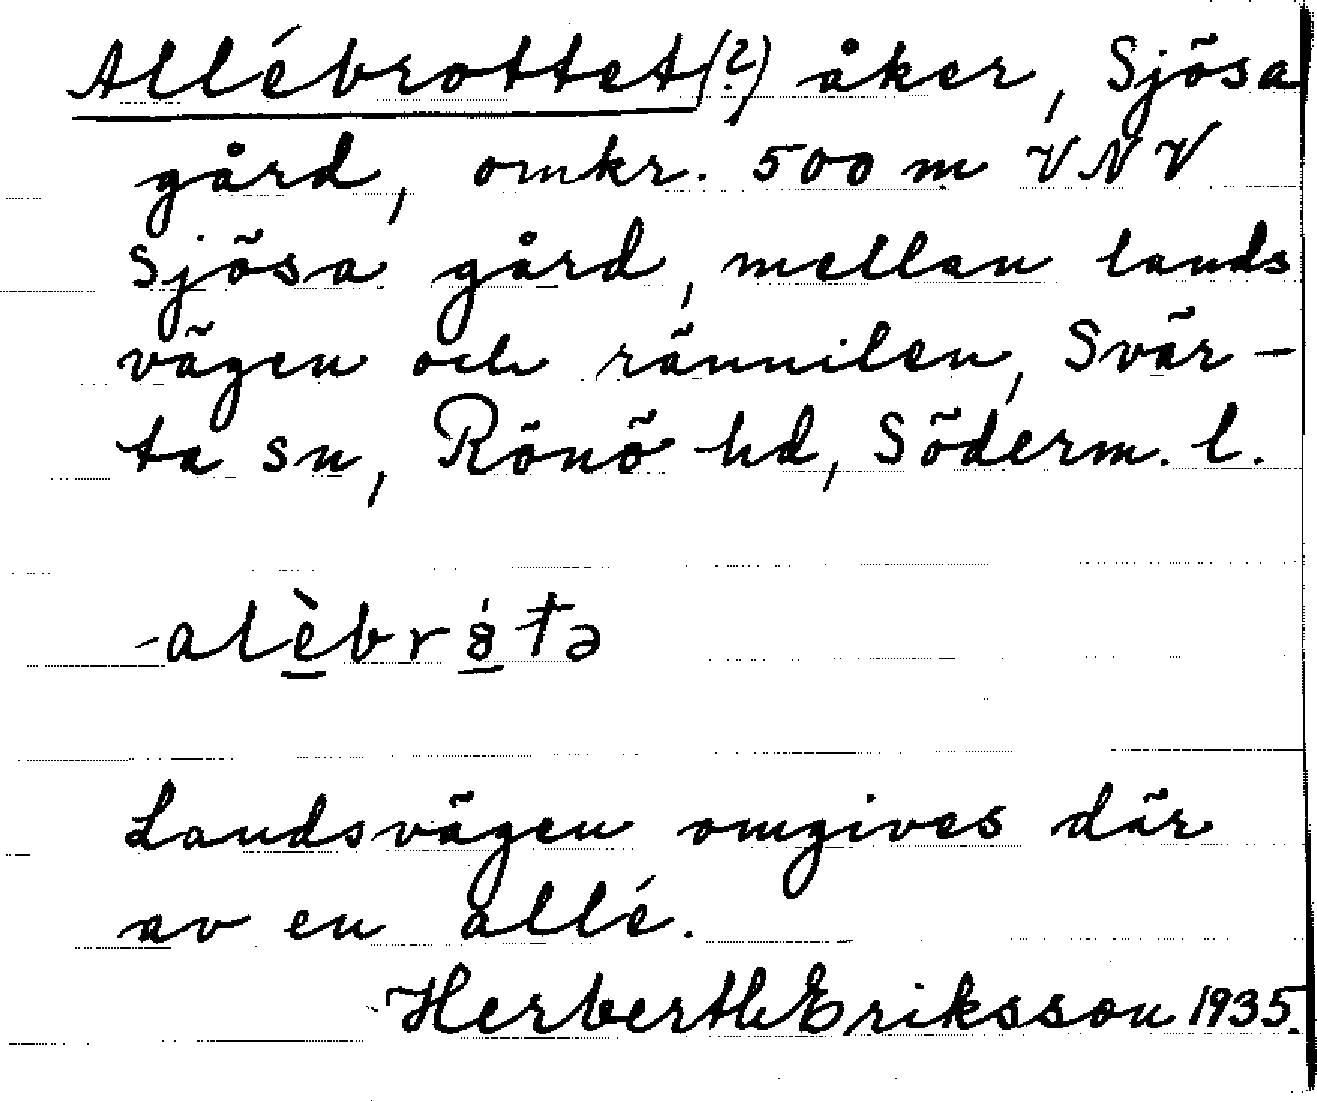 Allébrottet (?) åker, Sjösa
gård, omkr. 500 m VNV
Sjösa gård, mellan lands
vägen och rännilen, Svär-
ta sn, Rönö hd, Söderm. l.
Landsvägen omgives där
av en allé.
Herberth Eriksson 1935.